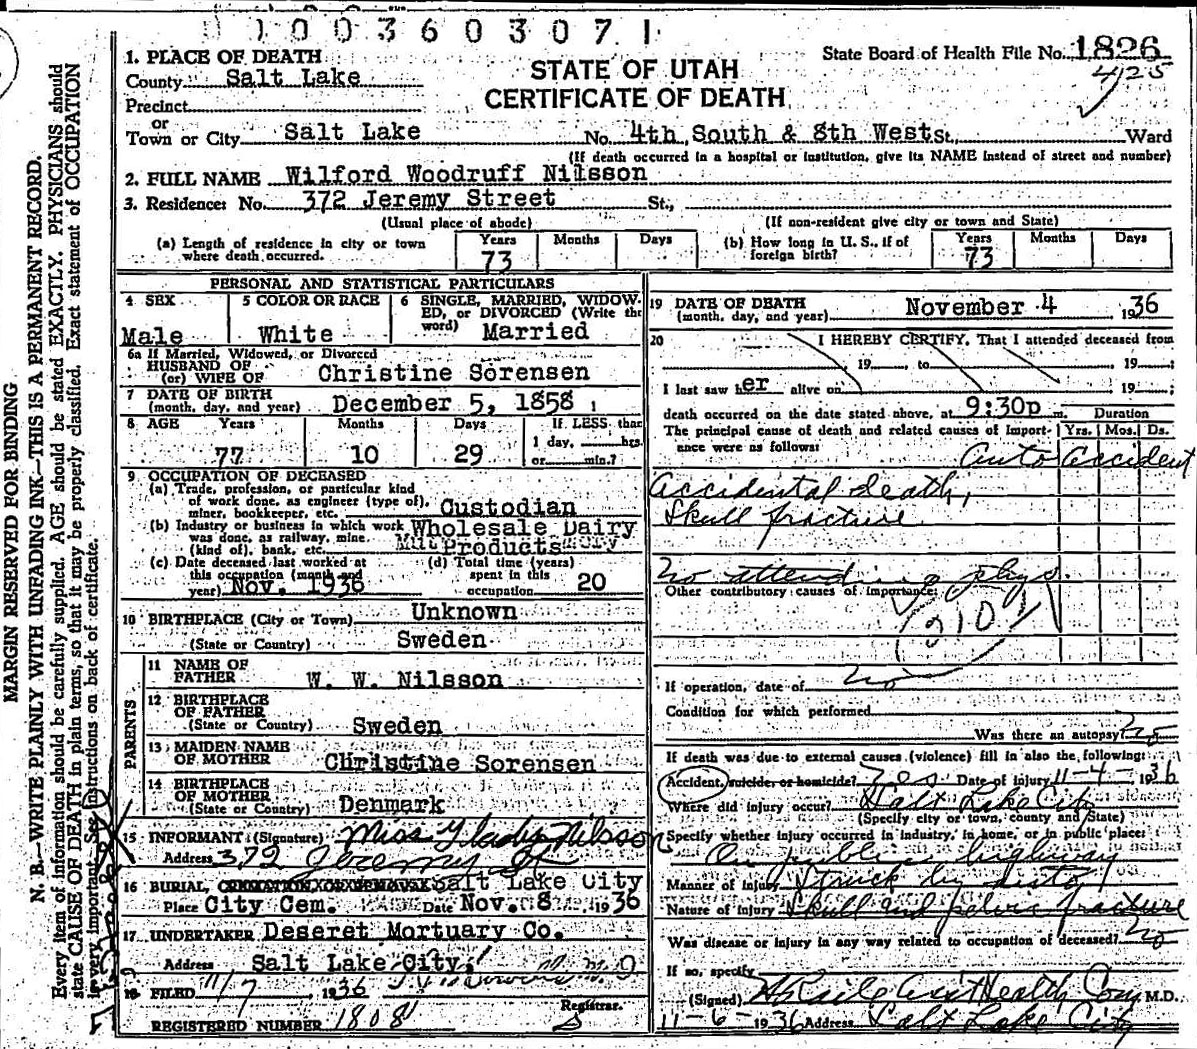 1003603071
1. PLACE OF DEATH
County Salt Lake
Precinct
or
Town or City Salt Lake No. 4th South & 8th West St., Ward
State Board of Health File No. 1826
4125
STATE OF UTAH
CERTIFICATE OF DEATH
(If death occurred in a hospital or institution, give its NAME instead of street and number)
2. FULL NAME Wilford Woodruff Nilsson
3. Residence: No. 372 Jeremy Street St.,
(Usual place of abode) (If non-resident give city or town and State)
(a) Length of residence in city or town where death occurred. Years 73 Months Days
(b) How long in U. S., if of foreign birth? Years 73 Months Days
PERSONAL AND STATISTICAL PARTICULARS
4 SEX Male
5 COLOR OR RACE White
6 SINGLE, MARRIED, WIDOWED, or DIVORCED (Write the word) Married
6a If Married, Widowed, or Divorced
HUSBAND OF
(or) WIFE OF Christine Sorensen
7 DATE OF BIRTH
(month, day, and year) December 5, 1858
8 AGE Years 77 Months 10 Days 29 If LESS than 1 day, hrs. or min.?
9 OCCUPATION OF DECEASED
(a) Trade, profession, or particular kind
of work done, as engineer (type of),
miner, bookkeeper, etc. Custodian
(b) Industry or business in which work
was done, as railway, mine,
(kind of), bank, etc. Wholesale Dairy Products
(c) Date deceased last worked at
this occupation (month and
year) Nov. 1936
(d) Total time (years)
spent in this
occupation 20
10 BIRTHPLACE (City or Town) Unknown
(State or Country) Sweden
PARENTS
11 NAME OF
FATHER W. W. Nilsson
12 BIRTHPLACE
OF FATHER
(State or Country) Sweden
13 MAIDEN NAME
OF MOTHER Christine Sorensen
14 BIRTHPLACE
OF MOTHER
(State or Country) Denmark
15 INFORMANT (Signature) Miss Gladys Nilsson
Address 372 Jeremy St
16 BURIAL, CREMATION OR REMOVAL Salt Lake City
Place City Cem. Date Nov. 8 1936
17 UNDERTAKER Deseret Mortuary Co.
Address Salt Lake City
18 FILED 11/7 1936
Registrar.
REGISTERED NUMBER 1808
19 DATE OF DEATH
(month, day, and year) November 4, 1936
20 I HEREBY CERTIFY, That I attended deceased from
19 , to 19 ;
I last saw her alive on 19 ;
death occurred on the date stated above, at 9:30p m. Duration
The principal cause of death and related causes of importance were as follows: Yrs. Mos. Ds.
Auto accident
Accidental death,
Skull fracture
No attending phys.
Other contributory causes of importance:
210
If operation, date of no
Condition for which performed
Was there an autopsy? no
If death was due to external causes (violence) fill in also the following:
Accident, suicide, or homicide? Yes Date of injury 11-4-1936
Where did injury occur? Salt Lake City
(Specify city or town, county and State)
Specify whether injury occurred in industry, in home, or in public place:
On public highway
Manner of injury Struck by auto
Nature of injury Skull and pelvis fracture
Was disease or injury in any way related to occupation of deceased? no
If so, specify
(Signed) Health Com M.D.
11-6-1936 Address Salt Lake City
MARGIN RESERVED FOR BINDING
N. B.—WRITE PLAINLY WITH UNFADING INK—THIS IS A PERMANENT RECORD.
Every item of information should be carefully supplied. AGE should be stated EXACTLY. PHYSICIANS should
state CAUSE OF DEATH in plain terms, so that it may be properly classified. Exact statement of OCCUPATION
is very important. See instructions on back of certificate.